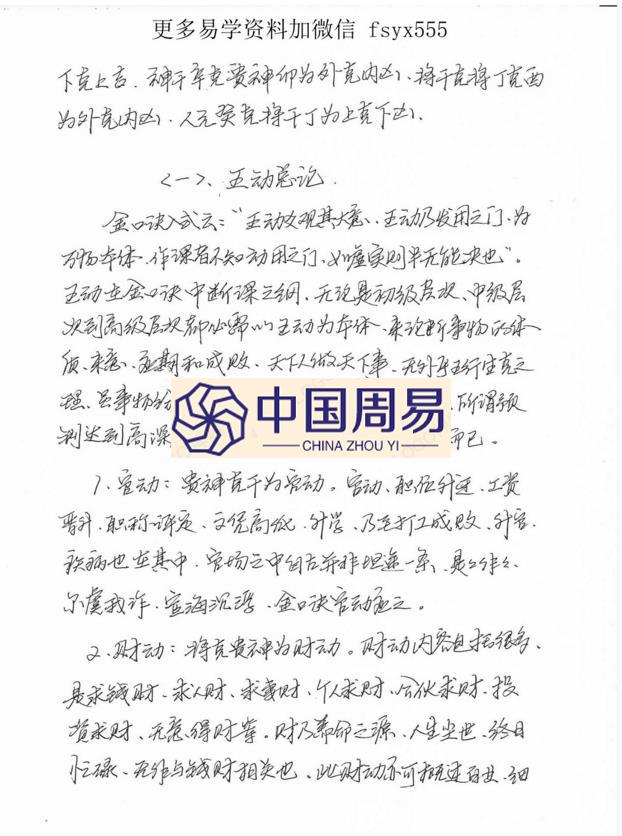 更多易学资料加微信 fsyx555
下克上吉. 神干辛克贵神卯为外克内凶. 将干克将丁克酉
为外克内凶. 人元癸克将干丁为上克下凶.
<一>、五动总论.
金口诀入式云："五动爻观其大意. 五动乃发用之门, 为
万物本体. 作课者不知动用之门, 如虚实则半无能决也"。
五动在金口诀中断课之纲, 无论是初级层次、中级层
次到高级层次都必需以五动为本体, 来论断事物的体
质、来意、应期和成败. 天下人做天下事. 无外乎五行生克之
理. 虽事物 所谓预
中国周易
CHINA ZHOU YI
测达到高深 而已.
1. 官动：贵神克干为官动. 官动、职位升迁、工资
晋升、职称评定、文凭高低、升学、乃至打工成败、升官.
疾病也在其中. 官场之中自古并非坦途一条, 是是非非、
尔虞我诈、宦海沉浮. 金口诀官动应之。
2. 财动：将克贵神为财动。财动内容包括很多.
是求钱财、求人财、求妻财、个人求财、合伙求财、投
资求财、无意得财等. 财乃养命之源、人生尘世、终日
忙碌、无非与钱财相关也. 此财动亦可概述百业、细